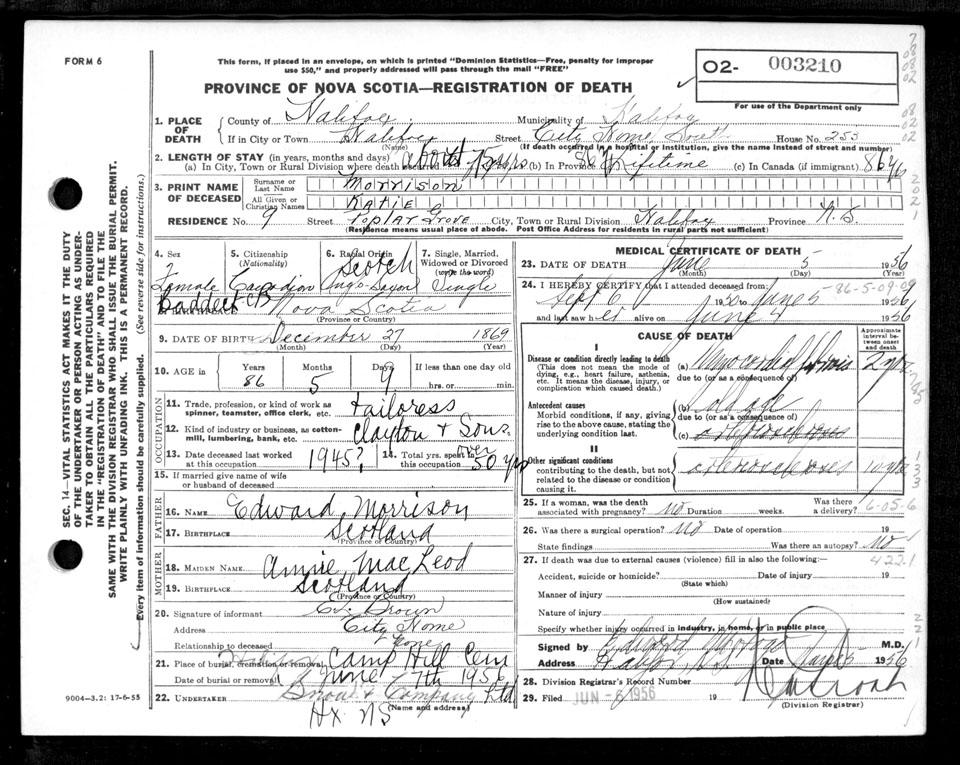 FORM 6
This form, if placed in an envelope, on which is printed "Dominion Statistics—Free, penalty for improper
use $50," and properly addressed will pass through the mail "FREE"
O2- 003210
PROVINCE OF NOVA SCOTIA—REGISTRATION OF DEATH
For use of the Department only
1. PLACE OF DEATH
County of Halifax Municipality of Halifax
If in City or Town Halifax Street City Home South House No. 253
(Name) (If death occurred in a hospital or institution, give the name instead of street and number)
2. LENGTH OF STAY (in years, months and days)
(a) In City, Town or Rural Division where death occurred about 75 yrs (b) In Province 86 Lifetime (c) In Canada (if immigrant) 86 y
3. PRINT NAME OF DECEASED
Surname or Last Name Morrison
All Given or Christian Names Katie
RESIDENCE No. 9 Street Poplar Grove City, Town or Rural Division Halifax Province N.S.
(Residence means usual place of abode. Post Office Address for residents in rural parts not sufficient)
4. Sex Female
5. Citizenship (Nationality) Canadian
6. Racial Origin Scotch Anglo-Saxon
7. Single, Married, Widowed or Divorced (write the word) Single
Baddeck CB Nova Scotia
(Province or Country)
9. DATE OF BIRTH December 27 1869
(Month) (Day) (Year)
10. AGE in Years 86 Months 5 Days 9 If less than one day
hrs. or min.
OCCUPATION
11. Trade, profession, or kind of work as spinner, teamster, office clerk, etc. tailoress
12. Kind of industry or business, as cotton-mill, lumbering, bank, etc. Clayton & Sons
13. Date deceased last worked at this occupation 1945? 14. Total yrs. spent in this occupation over 50 yrs
15. If married give name of wife or husband of deceased
FATHER
16. NAME Edward Morrison
17. BIRTHPLACE Scotland
(Province or Country)
MOTHER
18. MAIDEN NAME Annie MacLeod
19. BIRTHPLACE Scotland
(Province or Country)
20. Signature of informant Brown
Address City Home
Relationship to deceased none
21. Place of burial, cremation or removal Camp Hill Cem
Date of burial or removal June 7th 1956
22. UNDERTAKER Snow & Company Ltd
(Name and address)
Hx. NS
9004—3.2: 17-6-55
SEC. 14—VITAL STATISTICS ACT MAKES IT THE DUTY
OF THE UNDERTAKER OR PERSON ACTING AS UNDER-
TAKER TO OBTAIN ALL THE PARTICULARS REQUIRED
IN THE "REGISTRATION OF DEATH" AND TO FILE THE
SAME WITH THE DIVISION REGISTRAR WHO SHALL ISSUE THE BURIAL PERMIT.
WRITE PLAINLY WITH UNFADING INK. THIS IS A PERMANENT RECORD.
Every item of information should be carefully supplied. (See reverse side for instructions.)
MEDICAL CERTIFICATE OF DEATH
23. DATE OF DEATH June 5 1956
(Month) (Day)
24. I HEREBY CERTIFY that I attended deceased from:
Sept 6 1950 to June 5 1956
and last saw her alive on June 4 1956
-86-5-09-09
CAUSE OF DEATH
Approximate interval between onset and death
I
Disease or condition directly leading to death
(This does not mean the mode of dying, e.g., heart failure, asthenia, etc. It means the disease, injury, or complication which caused death.)
(a) Myocardial fibrosis
due to (or as a consequence of)
Antecedent causes
Morbid conditions, if any, giving rise to the above cause, stating the underlying condition last.
(b) old age
due to (or as a consequence of)
(c)
II
Other significant conditions
contributing to the death, but not related to the disease or condition causing it.
25. If a woman, was the death associated with pregnancy? No Duration weeks. Was there a delivery?
6-05-6
26. Was there a surgical operation? No Date of operation 19
State findings Was there an autopsy? No
27. If death was due to external causes (violence) fill in also the following:
4221
Accident, suicide or homicide? Date of injury 19
(State which)
Manner of injury
(How sustained)
Nature of injury
Specify whether injury occurred in industry, in home, or in public place
Signed by Edward M.D.
Address Date 5 1956
28. Division Registrar's Record Number
29. Filed JUN -6 1956 19
(Division Registrar)